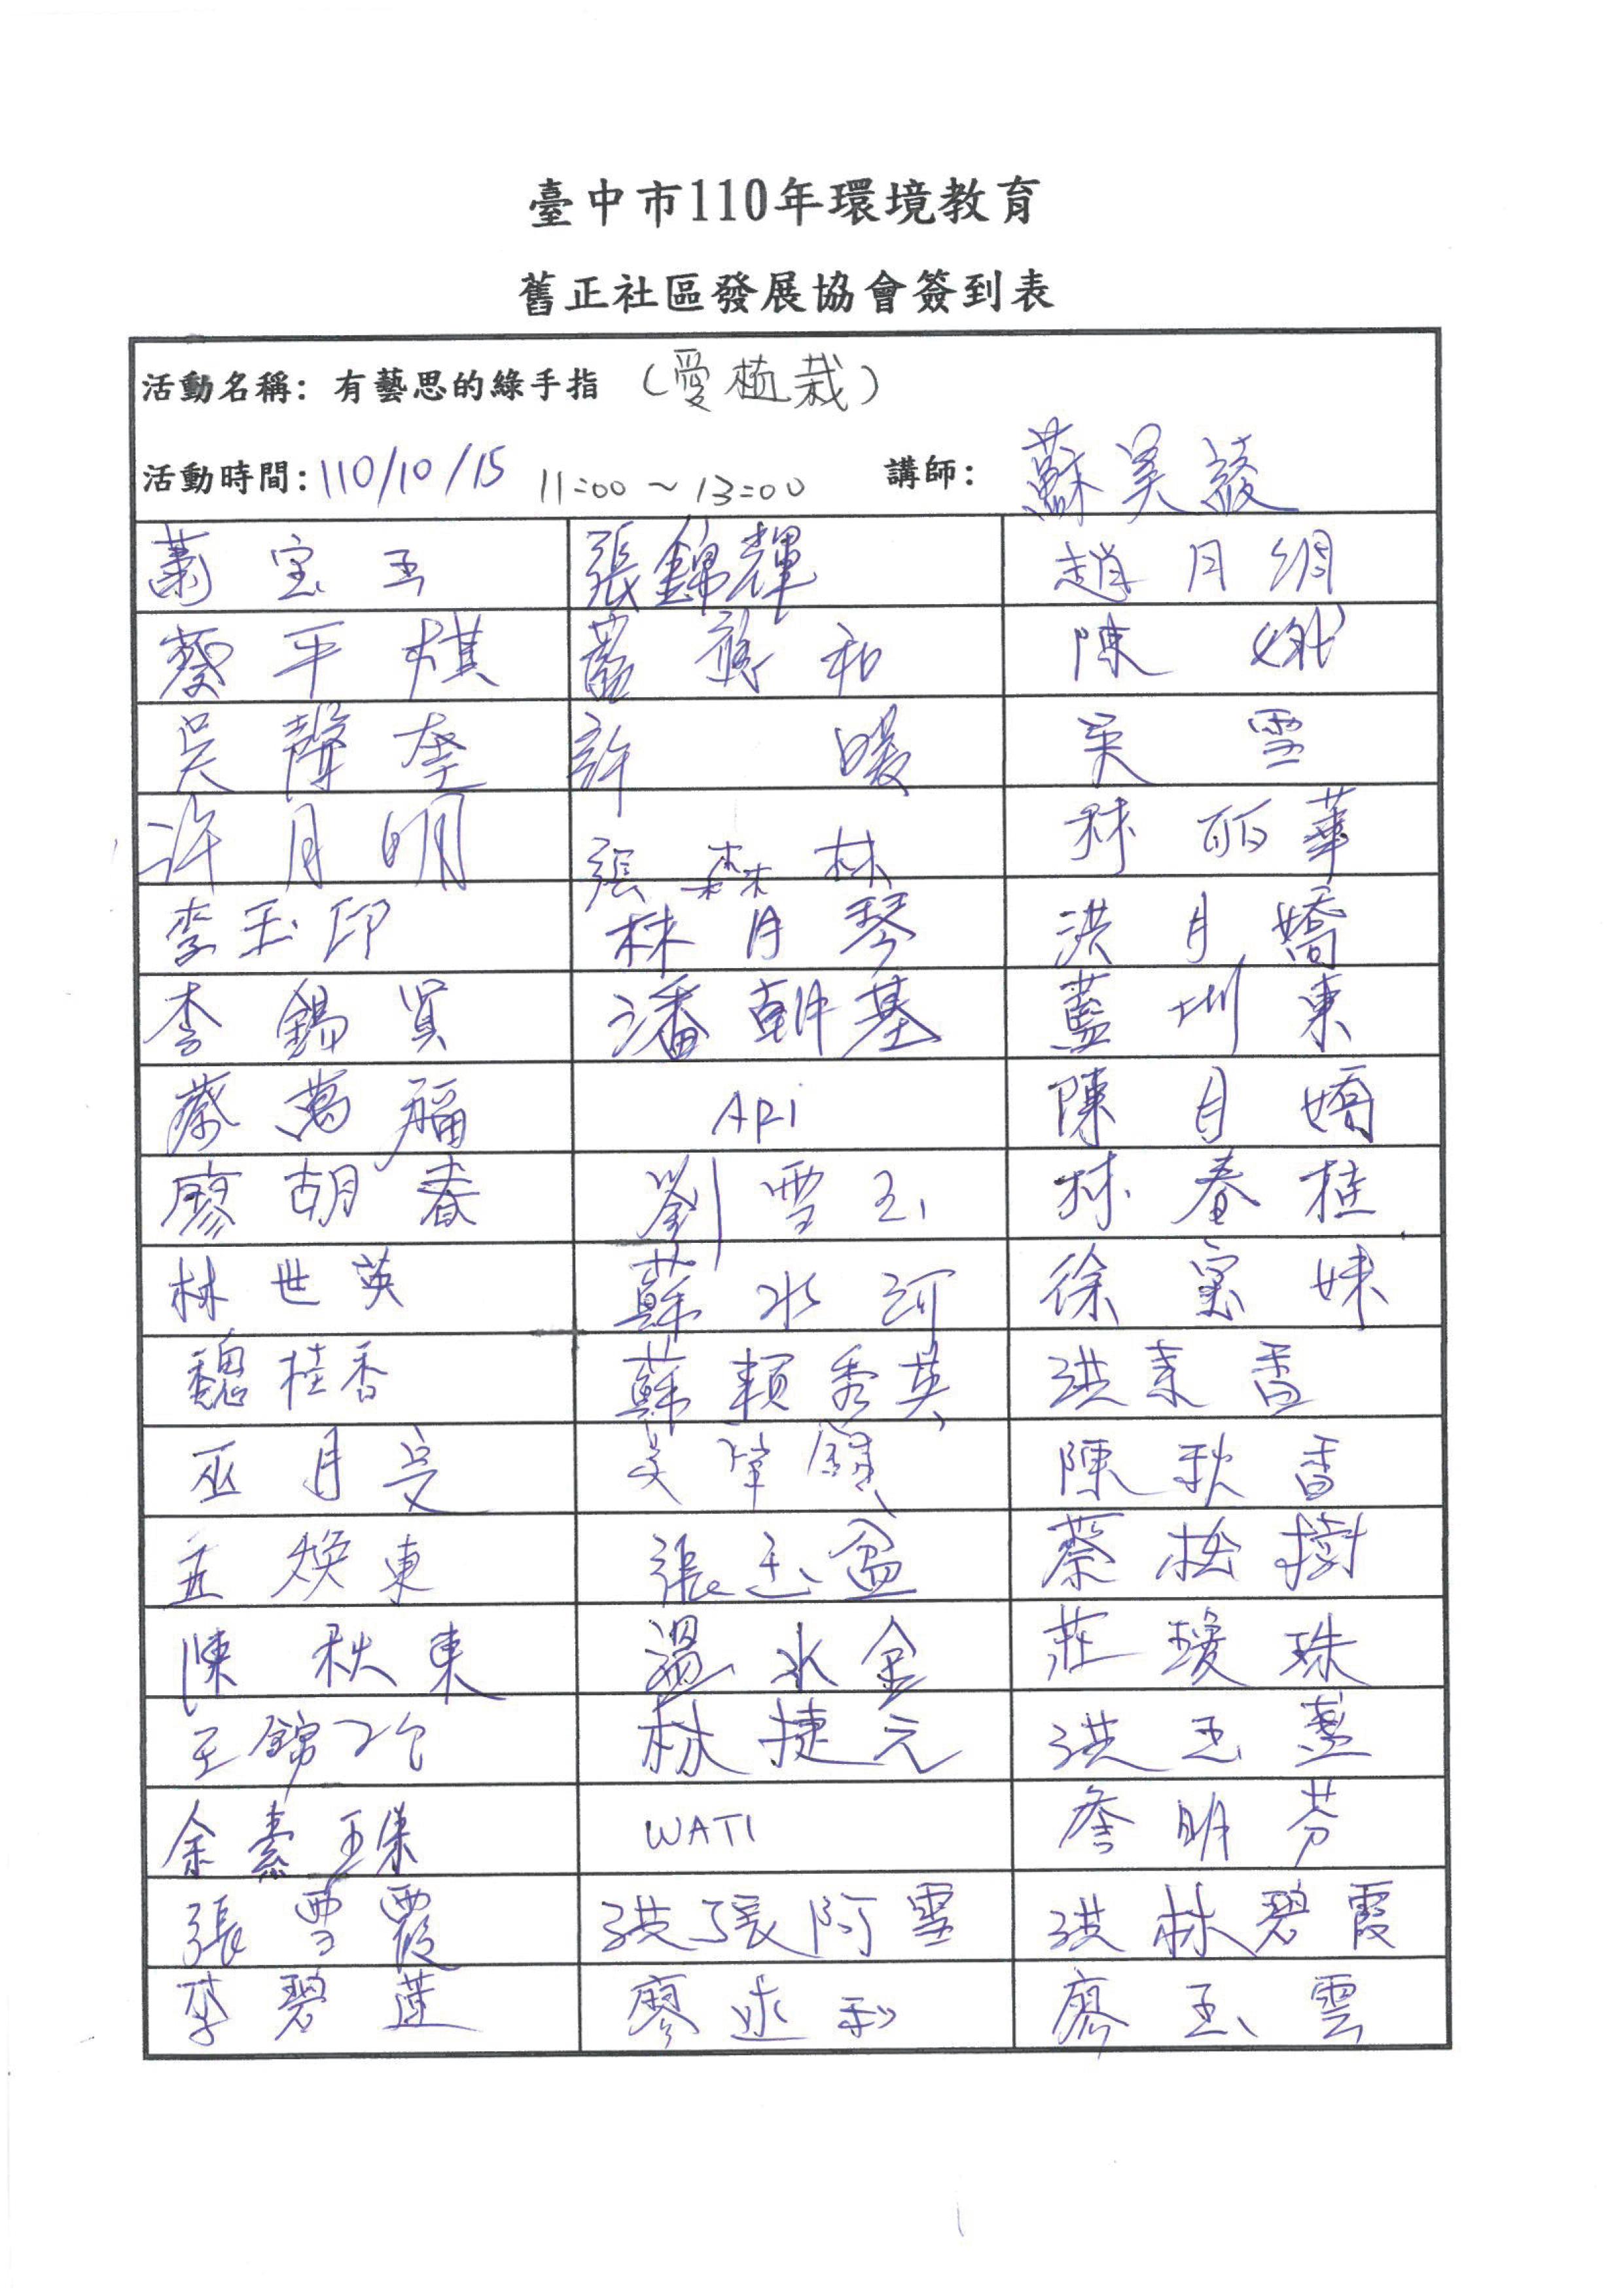 臺中市110年環境教育
舊正社區發展協會簽到表
活動名稱：有藝思的綠手指（愛植栽）
活動時間：110/10/15 11:00～13:00 講師：蘇美綾
蕭宝玉 張錦輝 趙月絹
蔡平棋 和 陳娥
吳聲奎 許暖 吴雪
许月明 張森林 林丽華
李玉印 林月琴 洪月嬌
李錫賢 潘朝基 藍圳東
蔡萬福 ARi 陳月嬌
廖胡春 劉雪玉 林春桂
林世英 蘇水河 徐宝妹
魏桂香 蘇賴秀英 洪素香
巫月 陳秋香
煥東 張玉盆 蔡松樹
陳秋東 溫水金 莊瓊珠
王錦治 林捷元 洪玉盞
余素珠 WATI 詹明芬
張雪霞 洪張阿雪 洪林碧霞
李碧蓮 廖 廖玉雲